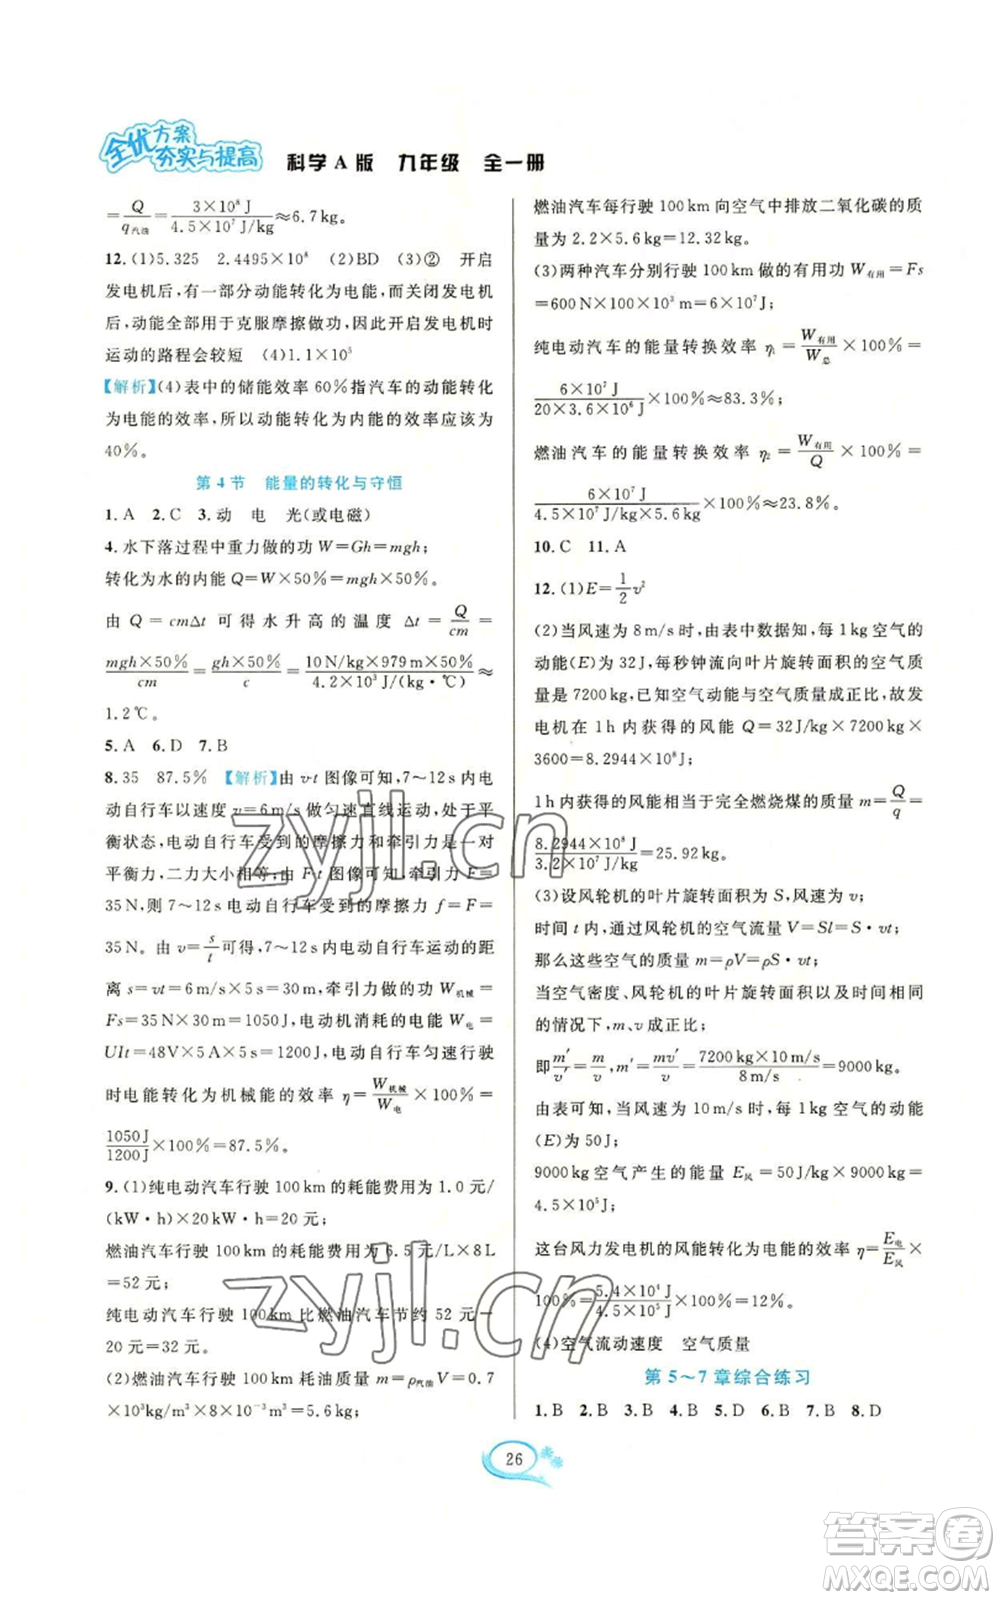 全优方案
夯实与提高
科学A版 九年级 全一册
=Q/q汽油=3×10⁸J/4.5×10⁷J/kg≈6.7kg。
12.(1)5.325 2.4495×10⁸ (2)BD (3)② 开启
发电机后,有一部分动能转化为电能,而关闭发电机
后,动能全部用于克服摩擦做功,因此开启发电机时
运动的路程会较短 (4)1.1×10⁵
【解析】(4)表中的储能效率60%指汽车的动能转化
为电能的效率,所以动能转化为内能的效率应该为
40%。
第4节 能量的转化与守恒
1.A 2.C 3.动 电 光(或电磁)
4.水下落过程中重力做的功W=Gh=mgh;
转化为水的内能Q=W×50%=mgh×50%。
由Q=cmΔt可得水升高的温度Δt=Q/cm=
mgh×50%/cm=gh×50%/c=10N/kg×979m×50%/4.2×10³J/(kg·℃)≈
1.2℃。
5.A 6.D 7.B
8.35 87.5% 【解析】由v-t图像可知,7~12s内电
动自行车以速度v=6m/s做匀速直线运动,处于平
衡状态,电动自行车受到的摩擦力和牵引力是一对
平衡力,二力大小相等;由F-t图像可知,牵引力F=
35N,则7~12s电动自行车受到的摩擦力f=F=
35N。由v=s/t可得,7~12s内电动自行车运动的距
离s=vt=6m/s×5s=30m,牵引力做的功W机械=
Fs=35N×30m=1050J,电动机消耗的电能W电=
UIt=48V×5A×5s=1200J,电动自行车匀速行驶
时电能转化为机械能的效率η=W机械/W电×100%=
1050J/1200J×100%=87.5%。
9.(1)纯电动汽车行驶100km的耗能费用为1.0元/
(kW·h)×20kW·h=20元;
燃油汽车行驶100km的耗能费用为6.5元/L×8L
=52元;
纯电动汽车行驶100km比燃油汽车节约52元-
20元=32元。
(2)燃油汽车行驶100km耗油质量m=ρ汽油V=0.7
×10³kg/m³×8×10⁻³m³=5.6kg;
燃油汽车每行驶100km向空气中排放二氧化碳的质
量为2.2×5.6kg=12.32kg。
(3)两种汽车分别行驶100km做的有用功W有用=Fs
=600N×100×10³m=6×10⁷J;
纯电动汽车的能量转换效率η₁=W有用/W总×100%=
6×10⁷J/20×3.6×10⁶J×100%≈83.3%;
燃油汽车的能量转换效率η₂=W有用/Q×100%=
6×10⁷J/4.5×10⁷J/kg×5.6kg×100%≈23.8%。
10.C 11.A
12.(1)E=1/2v²
(2)当风速为8m/s时,由表中数据知,每1kg空气的
动能(E)为32J,每秒钟流向叶片旋转面积的空气质
量是7200kg,已知空气动能与空气质量成正比,故发
电机在1h内获得的风能Q=32J/kg×7200kg×
3600=8.2944×10⁸J;
1h内获得的风能相当于完全燃烧煤的质量m=Q/q=
8.2944×10⁸J/3.2×10⁷J/kg=25.92kg。
(3)设风轮机的叶片旋转面积为S,风速为v;
时间t内流过风轮机的空气流量V=Sl=S·vt;
那么这些空气的质量m=ρV=ρS·vt;
当空气密度、风轮机的叶片旋转面积以及时间相同
的情况下,m、v成正比;
即m′/v′=m/v,m′=mv′/v=7200kg×10m/s/8m/s=9000kg。
由表可知,当风速为10m/s时,每1kg空气的动能
(E)为50J;
9000kg空气产生的能量E风=50J/kg×9000kg=
4.5×10⁵J;
这台风力发电机的风能转化为电能的效率η=E电/E风×
100%=5.4×10⁴J/4.5×10⁵J×100%=12%。
(4)空气流动速度 空气质量
第5~7章综合练习
1.B 2.B 3.B 4.B 5.D 6.B 7.B 8.D
26
zyjl.cn
zyjl.cn
答案卷
MXQE.COM